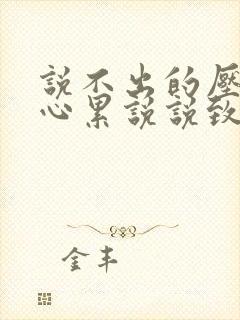 說不出的壓
心累說說致
金丰